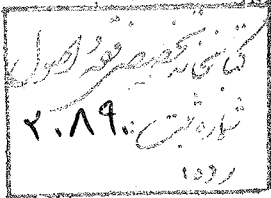 کتابخانه تخصصی فقه و اصول
شماره ثبت: ۲۰۸۹۰